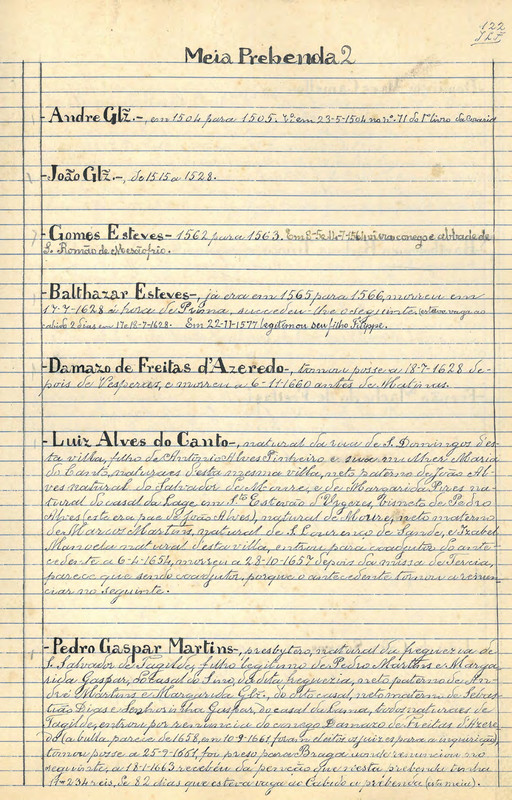 122
Meia Prebenda 2
- Andre Glz. -, em 1504 para 1505. em 23-5-1504 no nº 71 do 1º livro
- João Glz. -, de 1515 a 1528.
- Gomes Esteves - 1562 para 1563. era conego e abbade de
S. Romão de Mesãofrio.
- Balthazar Esteves -, já era em 1565 para 1566, morreu em
17-7-1628 á hora de Prima, succedeu-lhe o seguinte, esteve vaga no
cabido 2 dias em 17 e 18-7-1628. Em 22-11-1577 legitimou seu filho Filippe.
- Damazo de Freitas d'Azeredo -, tomou posse a 18-7-1628 de-
pois de Vesperas, e morreu a 6-11-1660 antes de Matinas.
- Luiz Alves do Canto -, natural da rua de S. Domingos d'es-
ta villa, filho de Antonio Alves Pinheiro e sua mulher Maria
do Canto, naturaes d'esta mesma villa, neto paterno de João Al-
ves natural do Salvador de Moure, e de Margarida Pires na-
tural do casal da Lage em Sto Estevão d'Urgeses, bisneto de Pedro
Alves (este era pae do João Alves), natural de Moure, neto materno
de Marcos Martins, natural de S. Lourenço de Sande, e Izabel
Manoela natural d'esta villa, entrou para coadjutor do ante-
cedente a 6-4-1654, morreu a 28-10-1657 depois da missa de Tercia,
parece que sendo coadjutor, porque o antecedente tornou a renun-
ciar no seguinte.
- Pedro Gaspar Martins -, presbytero, natural da freguezia de
S. Salvador de Tagilde, filho legitimo de Pedro Martins e Marga-
rida Gaspar, do casal do Sino, da dita freguezia, neto paterno de An-
dré Martins e Margarida Glz., do dito casal, neto materno de Sebas-
tião Dias e Senhorinha Gaspar, do casal da Lama, todos naturaes de
Tagilde, entrou por renuncia do conego Damazo de Freitas d'Azere-
do (a bulla, parece de 1658, em 10-9-1661, foram eleitos os juizes para a inquirição),
tomou posse a 25-9-1661, foi preso para Braga aonde renunciou no
seguinte, a 18-1-1663 recebeu da porção que n'esta prebenda tinha
reis, de 82 dias que esteve vaga ao Cabido a prebenda (em meio).